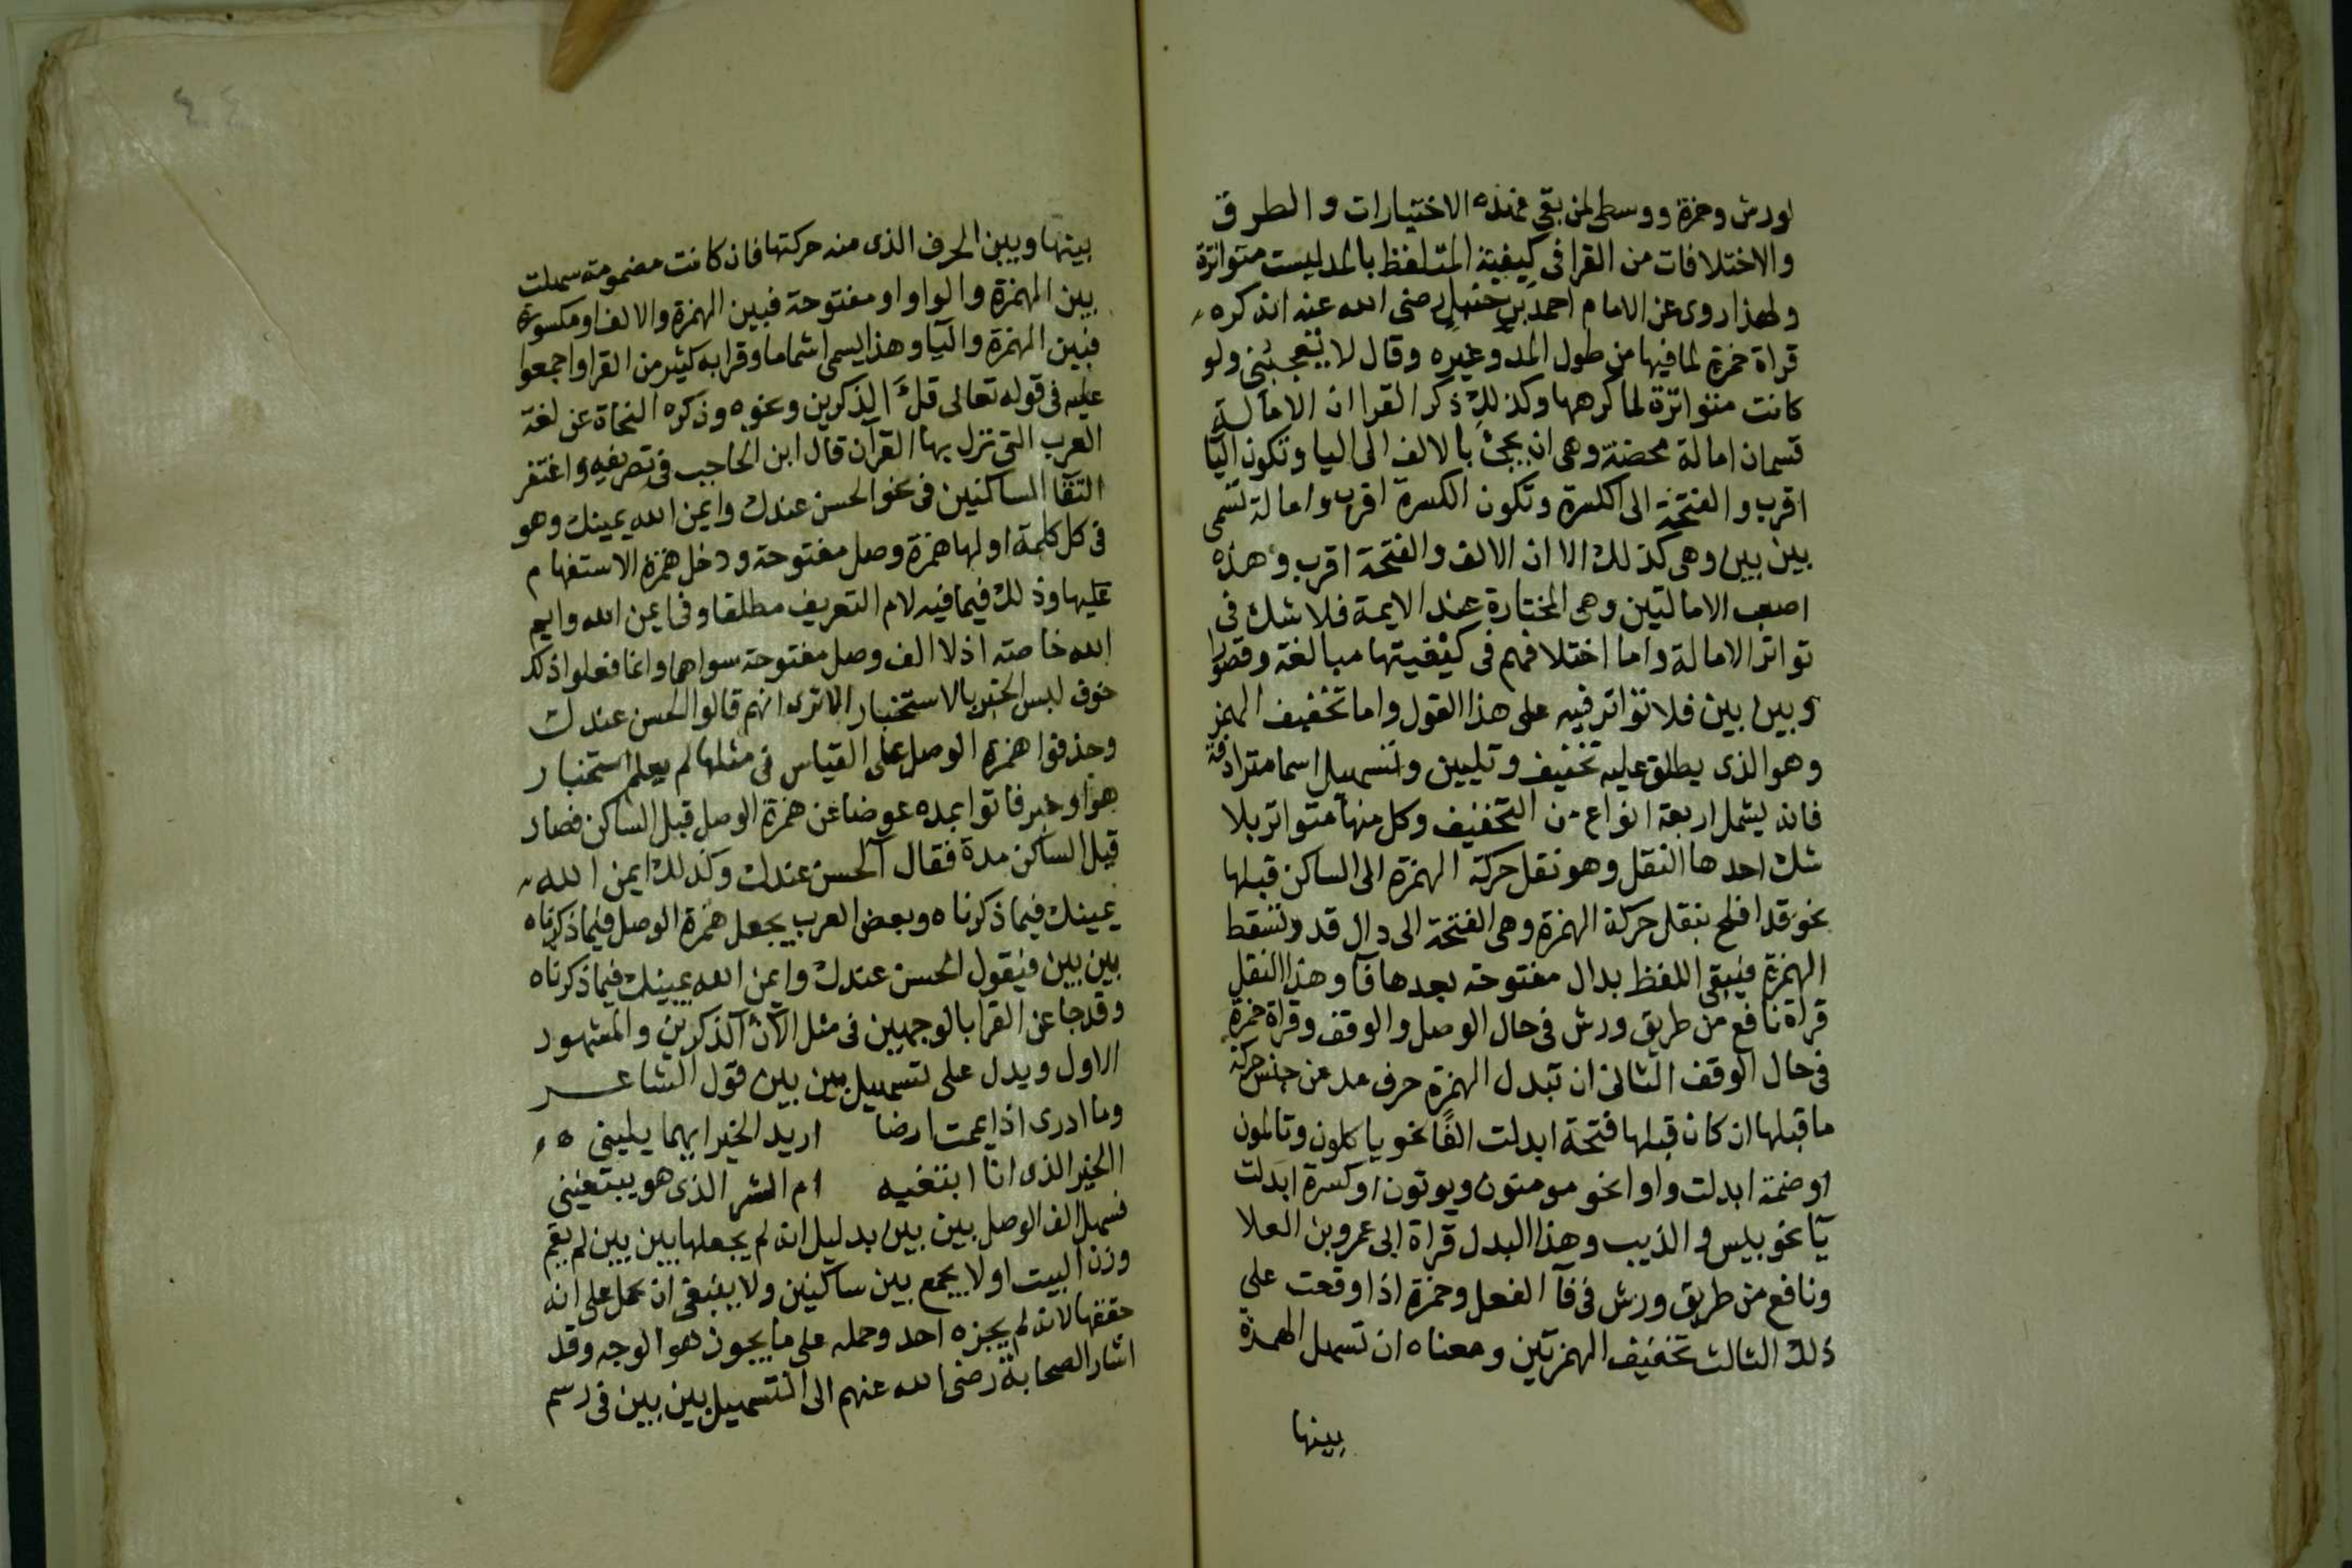 لورش وحمزة ووسطى لمن بقى فهذه الاختيارات والطرق
والاختلافات من القرا فى كيفية التلفظ بالمد ليست متواترة
ولهذا روى عن الامام احمد بن حنبل رضى الله عنه انه كره
قراة حمزة لما فيها من طول المد وغيره وقال لا تعجبنى ولو
كانت متواترة لما كرهها وكذلك ذكر القرا ان الامالة
قسمان امالة محضة وهى ان يجئ بالالف الى اليا وتكون اليا
اقرب والفتحة الى الكسرة وتكون الكسرة اقرب وامالة تسمى
بين بين وهى كذلك الا ان الالف والفتحة اقرب وهذه
اصعب الامالتين وهى المختارة عند الايمة فلا شك فى
تواتر الامالة واما اختلافهم فى كيفيتها مبالغة وقصورا
وبين بين فلا تواتر فيه على هذا القول واما تخفيف الهمز
وهو الذى يطلق عليه تخفيف وتليين وتسهيل اسما مترادفة
فانه يشمل اربعة انواع من التخفيف وكل منها متواتر بلا
شك احدها النقل وهو نقل حركة الهمزة الى الساكن قبلها
نحو قد افلح بنقل حركة الهمزة وهى الفتحة الى دال قد وتسقط
الهمزة فيبقى اللفظ بدال مفتوحة بعدها فآ وهذا النقل
قراة نافع من طريق ورش فى حال الوصل والوقف وقراة حمزة
فى حال الوقف الثانى ان تبدل الهمزة حرف مد من جنس حركة
ما قبلها ان كان قبلها فتحة ابدلت الفًا نحو ياكلون وتالمون
او ضمة ابدلت واوا نحو مومنون ويوتون او كسرة ابدلت
يآ نحو بيس والذيب وهذا البدل قراة ابى عمرو بن العلا
ونافع من طريق ورش فى فآ الفعل وحمزة اذا وقعت على
ذلك الثالث تخفيف الهمزتين ومعناه ان تسهل الهمزة
بينها
بينها وبين الحرف الذى منه حركتها فان كانت مضمومة سهلت
بين الهمزة والواو او مفتوحة فبين الهمزة والالف او مكسورة
فبين الهمزة واليآ وهذا يسمى اشماما وقرا به كثير من القرا واجمعوا
عليه فى قوله تعالى قل آلذكرين ونحوه وذكره النحاة عن لغة
العرب التى نزل بها القرآن قال ابن الحاجب فى تصريفه واغتفر
التقا الساكنين فى نحو الحسن عندك وايمن الله يمينك وهو
فى كل كلمة اولها همزة وصل مفتوحة ودخل همزة الاستفهام
عليها وذلك فيما فيه لام التعريف مطلقا وفى ايمن الله وايم
الله خاصته اذ لا الف وصل مفتوحة سواهما وانما فعلوا ذلك
خوف لبس الخبر بالاستخبار الا ترى انهم قالوا الحسن عندك
وحذفوا همزة الوصل على القياس فى مثلها لم يعلم استخبار
هو او خبر فاتوا بمده عوضا عن همزة الوصل قبل الساكن فصار
قبل الساكن مدة فقال آلحسن عندك وكذلك ايمن الله
يمينك فيما ذكرناه وبعض العرب يجعل همزة الوصل فيما ذكرناه
بين بين فيقول الحسن عندك وايمن الله يمينك فيما ذكرناه
وقد جا عن القرا بالوجهين فى مثل الآن آلذكرين والمشهور
الاول ويدل على تسهيل بين بين قول الشاعر
وما ادرى اذا يممت ارضا اريد الخير ايهما يلينى
االخير الذى انا ابتغيه ام الشر الذى هو يبتغينى
فسهل الف الوصل بين بين بدليل انه لم يجعلها بين بين لم يقم
وزن البيت اولا يجمع بين ساكنين ولا ينبغى ان يحمل على انه
حققها لانه لم يجزه احد وحمله على ما يجوز هو الوجه وقد
اشار الصحابة رضى الله عنهم الى التسهيل بين بين فى رسم